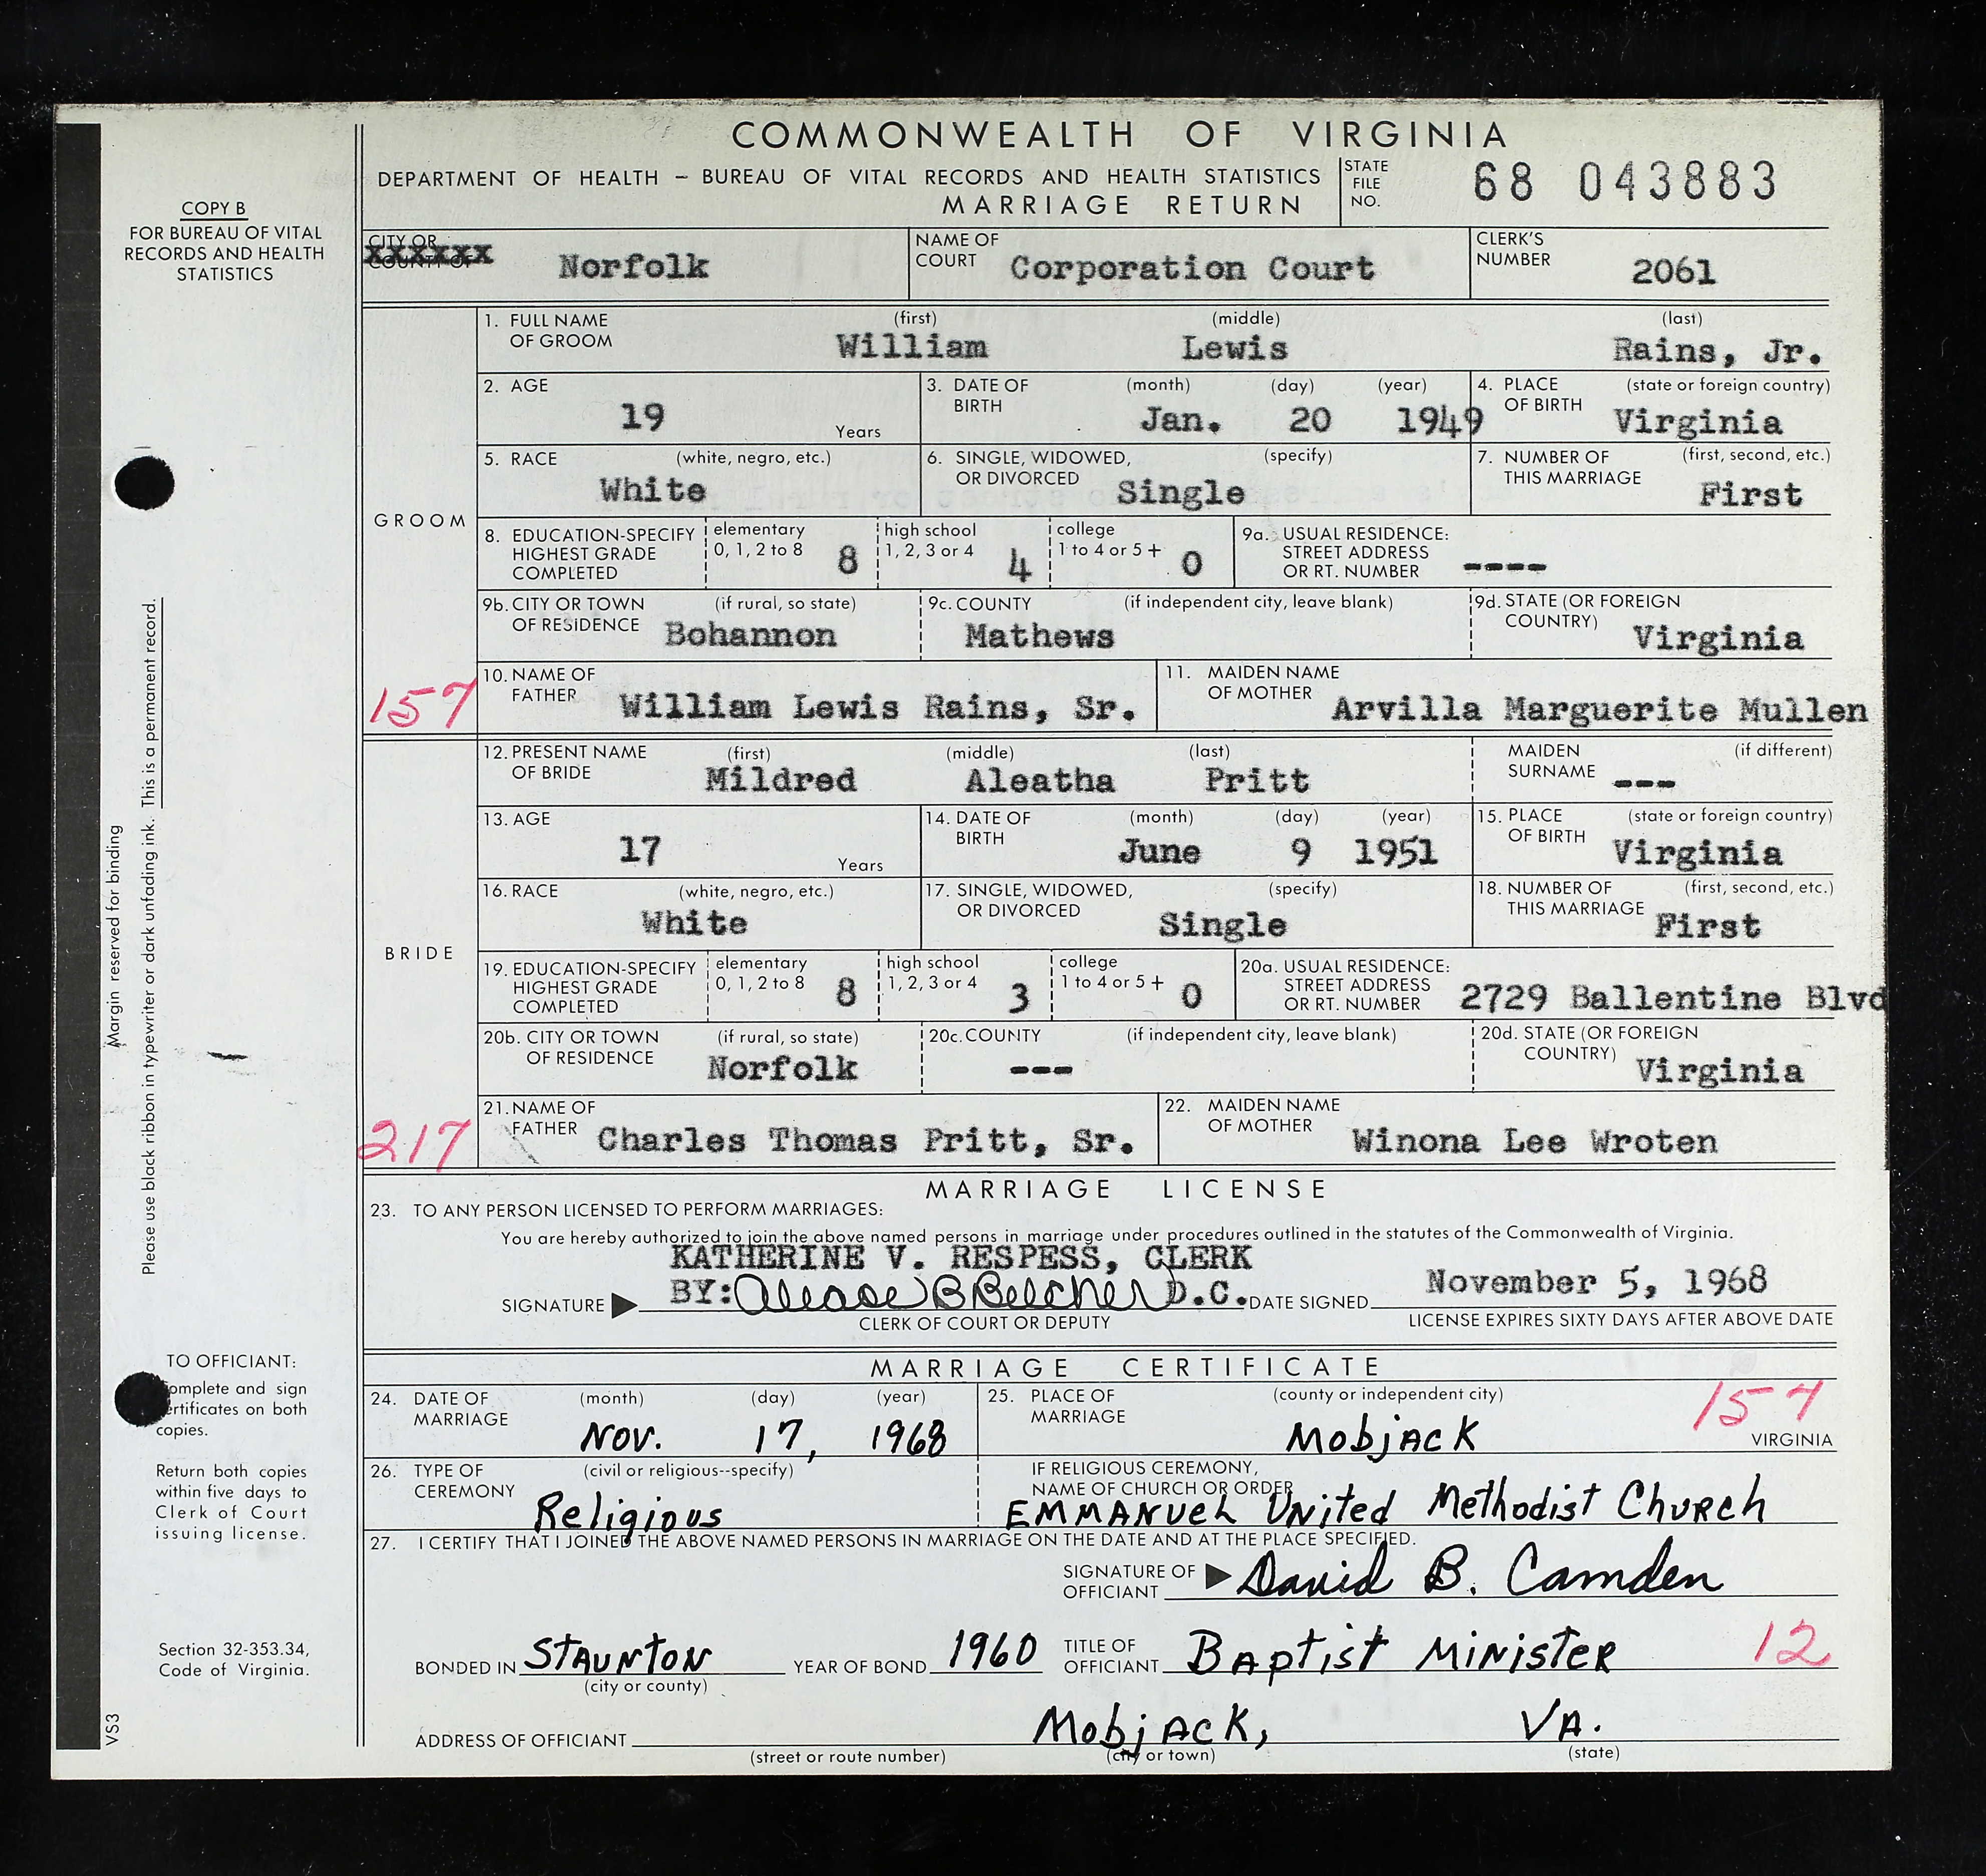 COMMONWEALTH OF VIRGINIA
DEPARTMENT OF HEALTH – BUREAU OF VITAL RECORDS AND HEALTH STATISTICS
MARRIAGE RETURN
STATE FILE NO. 68 043883
COPY B
FOR BUREAU OF VITAL
RECORDS AND HEALTH
STATISTICS
CITY OR
COUNTY OF
XXXXXX Norfolk
NAME OF COURT Corporation Court
CLERK'S NUMBER 2061
GROOM
1. FULL NAME OF GROOM (first) (middle) (last)
William Lewis Rains, Jr.
2. AGE 19 Years
3. DATE OF BIRTH (month) (day) (year) Jan. 20 1949
4. PLACE OF BIRTH (state or foreign country) Virginia
5. RACE (white, negro, etc.) White
6. SINGLE, WIDOWED, OR DIVORCED (specify) Single
7. NUMBER OF THIS MARRIAGE (first, second, etc.) First
8. EDUCATION-SPECIFY HIGHEST GRADE COMPLETED
elementary 0, 1, 2 to 8 8
high school 1, 2, 3 or 4 4
college 1 to 4 or 5 + 0
9a. USUAL RESIDENCE: STREET ADDRESS OR RT. NUMBER ----
9b. CITY OR TOWN OF RESIDENCE (if rural, so state) Bohannon
9c. COUNTY (if independent city, leave blank) Mathews
9d. STATE (OR FOREIGN COUNTRY) Virginia
157
10. NAME OF FATHER William Lewis Rains, Sr.
11. MAIDEN NAME OF MOTHER Arvilla Marguerite Mullen
BRIDE
12. PRESENT NAME OF BRIDE (first) (middle) (last)
Mildred Aleatha Pritt
MAIDEN SURNAME (if different) ---
13. AGE 17 Years
14. DATE OF BIRTH (month) (day) (year) June 9 1951
15. PLACE OF BIRTH (state or foreign country) Virginia
16. RACE (white, negro, etc.) White
17. SINGLE, WIDOWED, OR DIVORCED (specify) Single
18. NUMBER OF THIS MARRIAGE (first, second, etc.) First
19. EDUCATION-SPECIFY HIGHEST GRADE COMPLETED
elementary 0, 1, 2 to 8 8
high school 1, 2, 3 or 4 3
college 1 to 4 or 5 + 0
20a. USUAL RESIDENCE: STREET ADDRESS OR RT. NUMBER 2729 Ballentine Blvd
20b. CITY OR TOWN OF RESIDENCE (if rural, so state) Norfolk
20c. COUNTY (if independent city, leave blank) ---
20d. STATE (OR FOREIGN COUNTRY) Virginia
217
21. NAME OF FATHER Charles Thomas Pritt, Sr.
22. MAIDEN NAME OF MOTHER Winona Lee Wroten
MARRIAGE LICENSE
23. TO ANY PERSON LICENSED TO PERFORM MARRIAGES:
You are hereby authorized to join the above named persons in marriage under procedures outlined in the statutes of the Commonwealth of Virginia.
KATHERINE V. RESPESS, CLERK
SIGNATURE BY: Alease B Belcher D.C. DATE SIGNED November 5, 1968
CLERK OF COURT OR DEPUTY
LICENSE EXPIRES SIXTY DAYS AFTER ABOVE DATE
MARRIAGE CERTIFICATE
24. DATE OF MARRIAGE (month) (day) (year) Nov. 17, 1968
25. PLACE OF MARRIAGE (county or independent city) Mobjack VIRGINIA
157
26. TYPE OF CEREMONY (civil or religious--specify) Religious
IF RELIGIOUS CEREMONY, NAME OF CHURCH OR ORDER Emmanuel United Methodist Church
27. I CERTIFY THAT I JOINED THE ABOVE NAMED PERSONS IN MARRIAGE ON THE DATE AND AT THE PLACE SPECIFIED.
SIGNATURE OF OFFICIANT David B. Camden
BONDED IN Staunton (city or county) YEAR OF BOND 1960
TITLE OF OFFICIANT Baptist Minister
12
ADDRESS OF OFFICIANT Mobjack, VA.
(street or route number) (city or town) (state)
Margin reserved for binding
Please use black ribbon in typewriter or dark unfading ink. This is a permanent record.
TO OFFICIANT:
omplete and sign
ertificates on both
copies.
Return both copies
within five days to
Clerk of Court
issuing license.
Section 32-353.34,
Code of Virginia.
VS3